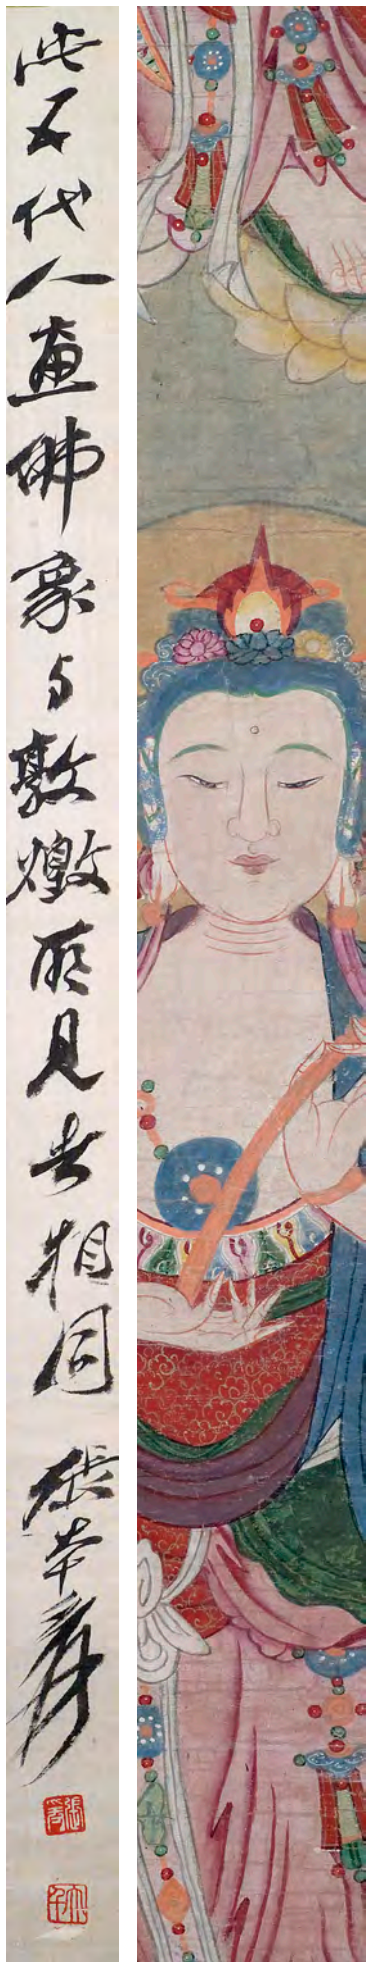 此五代人画佛象与敦煌所见者相同 張大千
張爰
大千